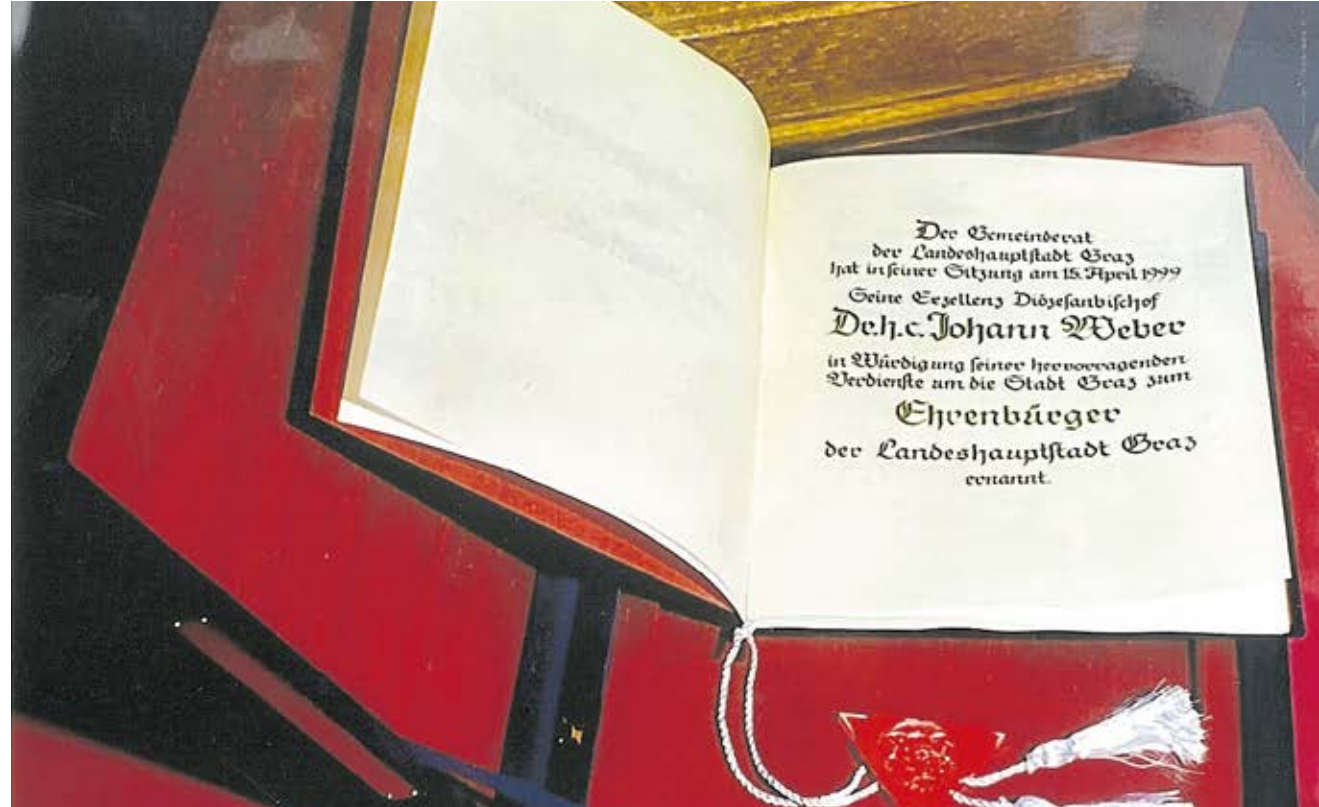 Der Gemeinderat
der Landeshauptstadt Graz
hat in seiner Sitzung am 15. April 1999
Seine Exzellenz Diözesanbischof
Dr.h.c. Johann Weber
in Würdigung seiner hervorragenden
Verdienste um die Stadt Graz zum
Ehrenbürger
der Landeshauptstadt Graz
ernannt.